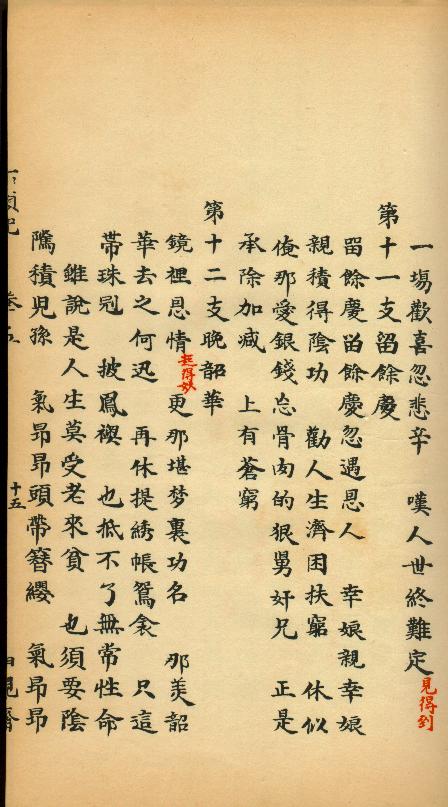 一塲歡喜忽悲辛　嘆人世終難定見得到
第十一支留餘慶
畄餘慶畄餘慶忽遇恩人　幸娘親幸娘
親積得陰功　勸人生濟困扶窮　休似
俺那愛銀錢忘骨肉的狠舅奸兄　正是
承除加减　上有蒼窮
第十二支晚韶華
鏡裡恩情起得妙更那堪梦裏功名　那美韶
華去之何迅　再休提綉帳鴛衾　只這
帶珠冠　披鳳襖　也抵不了無常性命
雖說是人生莫受老來貧　也須要陰
隲積兒孫　氣昂昂頭帶簪纓　氣昂昂
卷五
十五